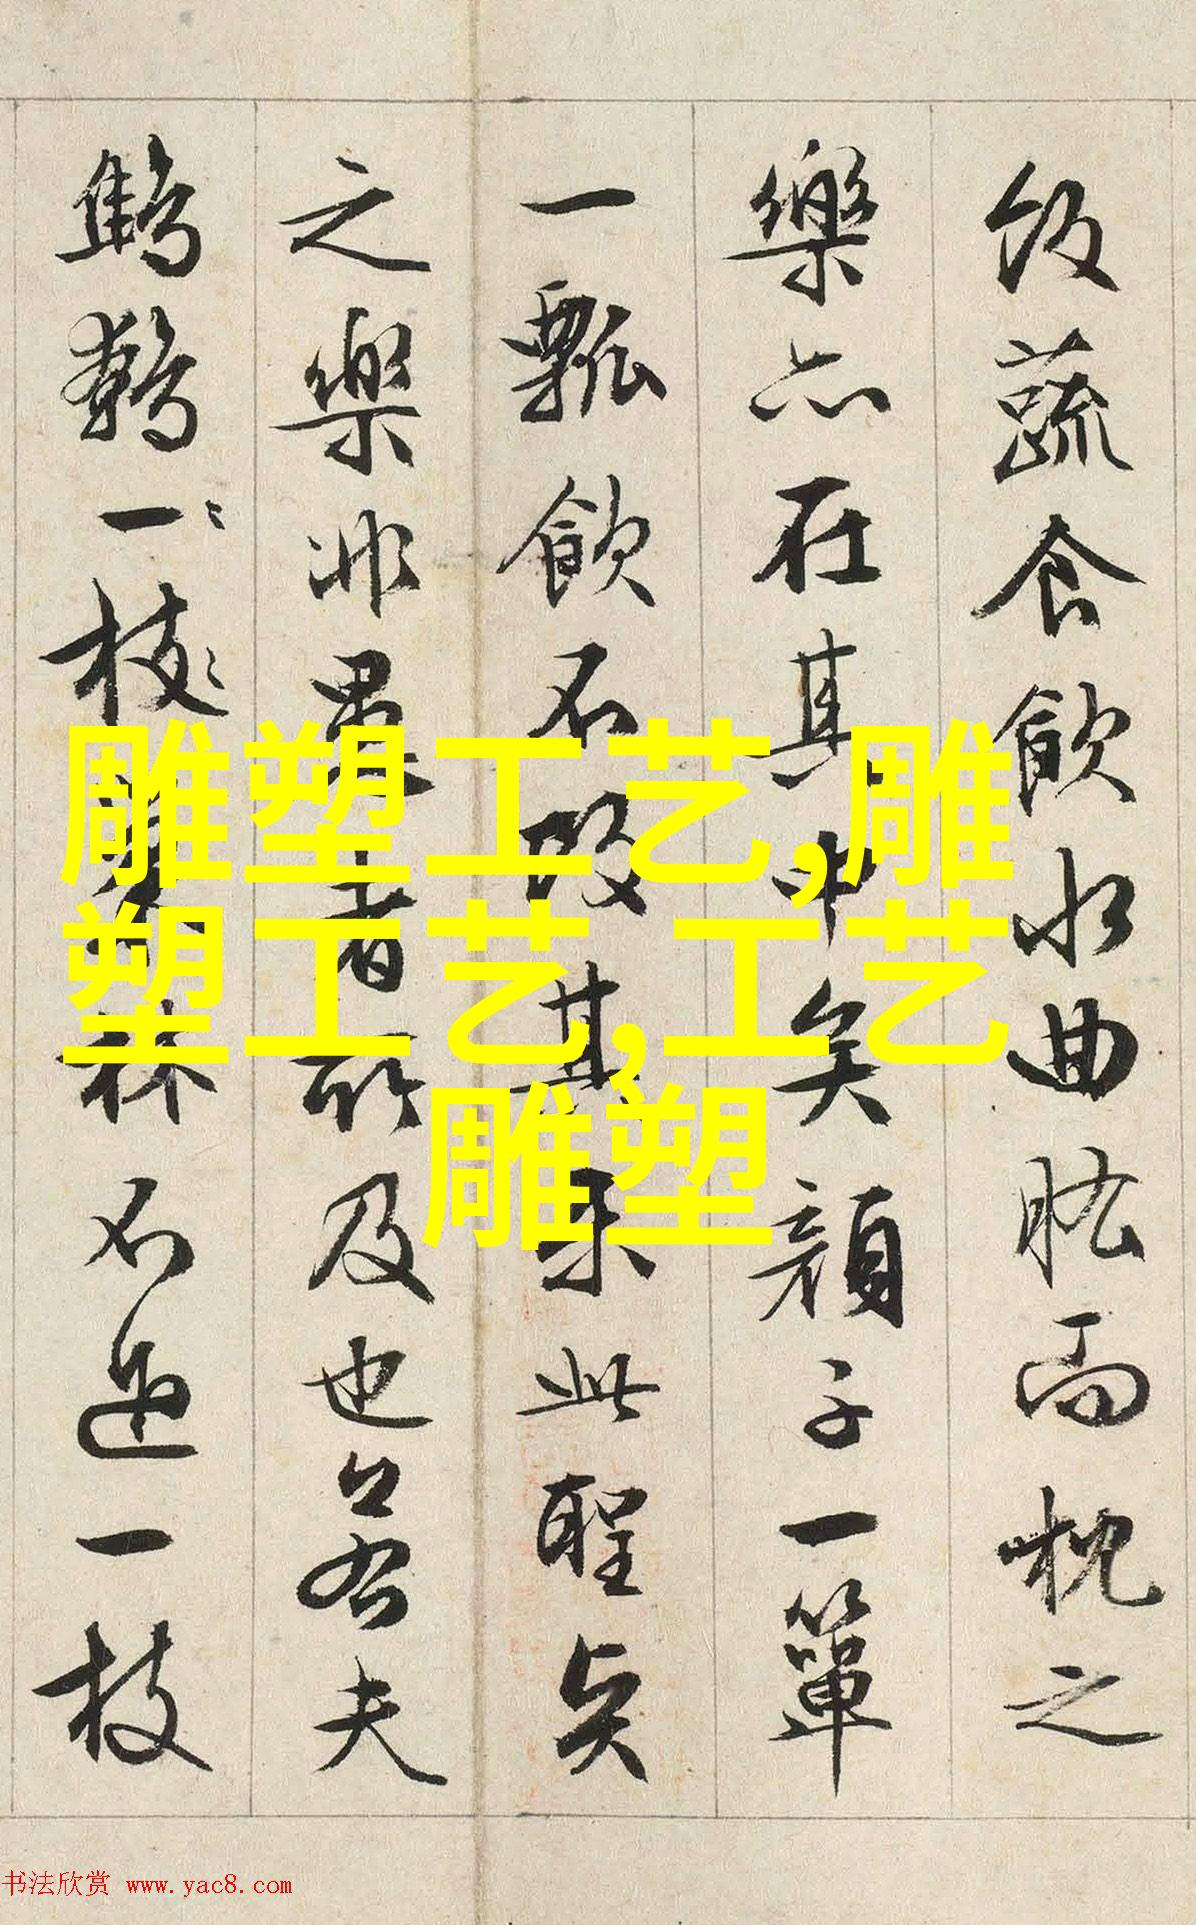 飯蔬食飲水曲肱而枕之
樂亦在其中矣顏子一簞
一瓢飲不改其樂此聖賢
之樂非愚者所及也若夫
鷦鷯一枝巢林不過一枝
雕塑工艺,雕
塑工艺,工艺
雕塑
书法欣赏 www.yac8.com